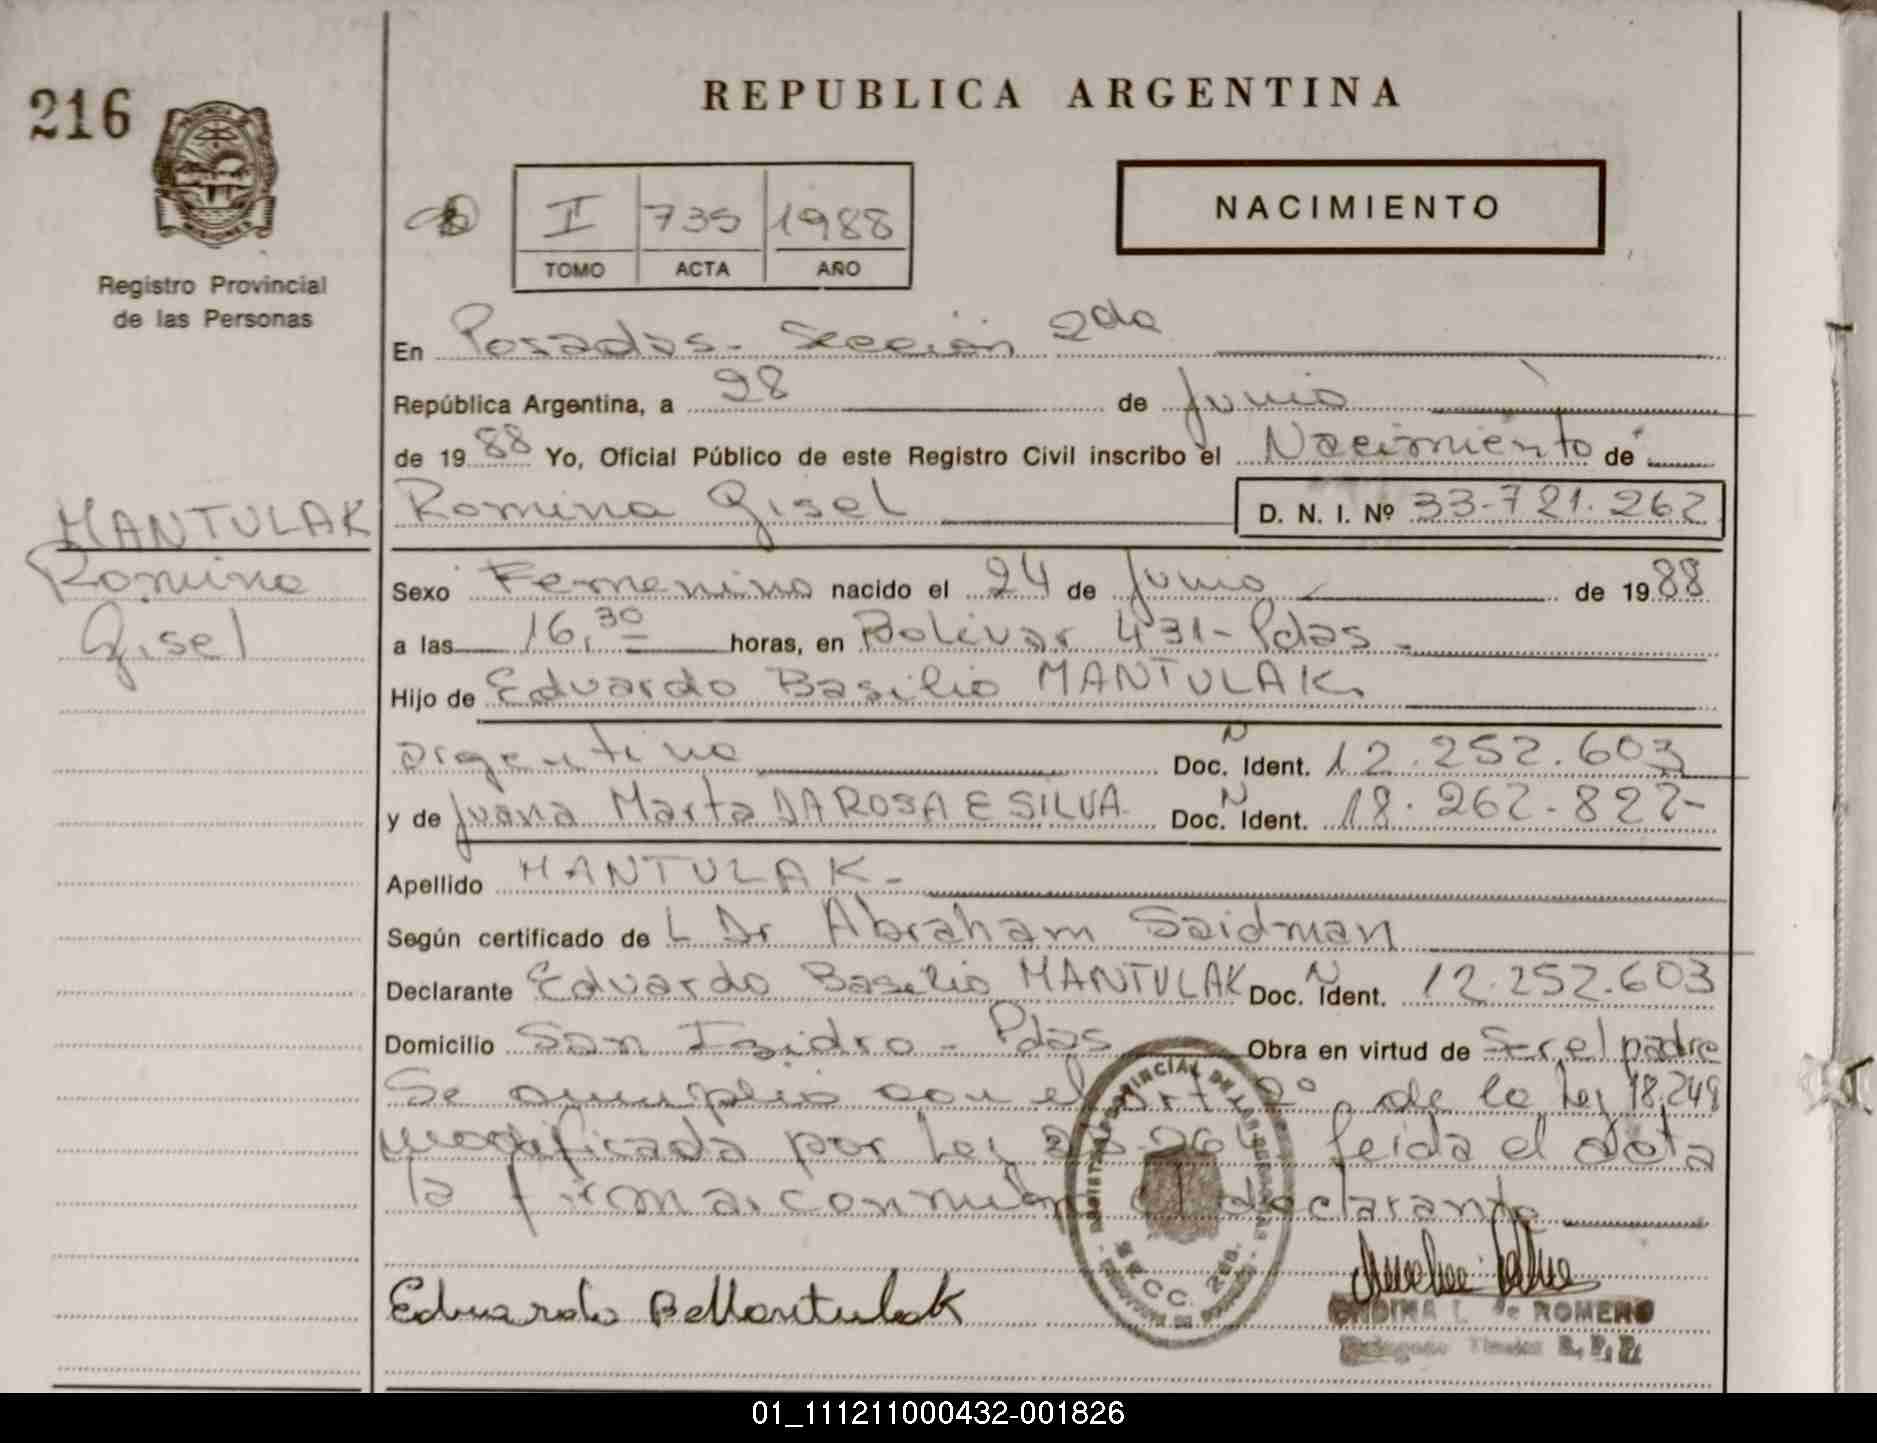 216
REPUBLICA ARGENTINA
II 735 1988
TOMO ACTA AÑO
NACIMIENTO
Registro Provincial
de las Personas
En Posadas - Sección 2da
República Argentina, a 28 de Junio
de 1988 Yo, Oficial Público de este Registro Civil inscribo el Nacimiento de
Romina Gisel D. N. I. Nº 33.721.262
MANTULAK
Romina
Gisel
Sexo Femenino nacido el 24 de Junio de 1988
a las 16,30 horas, en Bolivar 431 - Pdas -
Hijo de Eduardo Basilio MANTULAK.
argentino Doc. N Ident. 12.252.603
y de Juana Marta DA ROSA E SILVA Doc. N Ident. 18.262.822-
Apellido MANTULAK -
Según certificado de L Dr Abraham Saidman
Declarante Eduardo Basilio MANTULAK Doc. N Ident. 12.252.603
Domicilio San Izidro - Pdas Obra en virtud de Ser el padre
Se cumplió con el art 2º de la Ley 18.248
modificada por Ley leida el acta
la firma conmigo el declarante
Eduardo B Mantulak
ONDINA L. de ROMERO
R. P. P.
SECC. 2da.
01_111211000432-001826